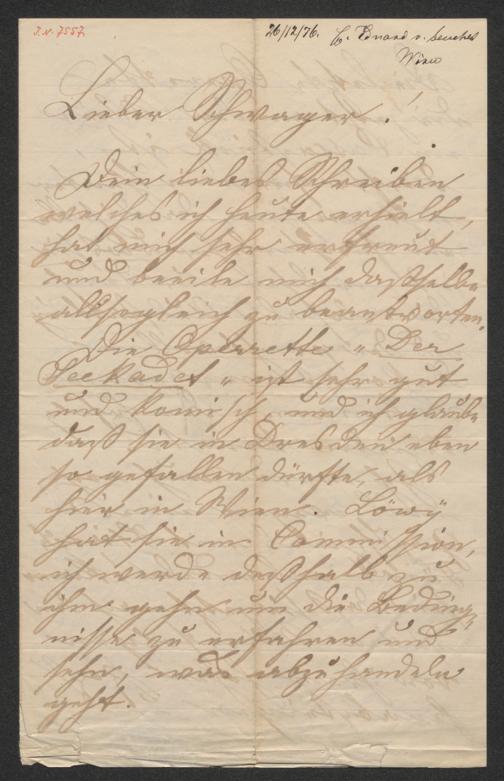 I.N. 7557.
26/12/76. E. Eduard v.
Wien
Lieber Schwager!
Dein liebes Schreiben
welches ich heute erhielt,
hat mich sehr erfreut
und beeile mich dasselbe
allsogleich zu beantworten.
Die Operrette „Der
Seekadet" ist sehr gut
und komisch, und ich glaube
daß sie in Dresden eben
so gefallen dürfte, als
hier in Wien. Löwy
hat sie in Commission,
ich werde deßhalb zu
ihm gehn um die Beding-
nisse zu erfahren und
sehn, was abzuhandeln
geht.